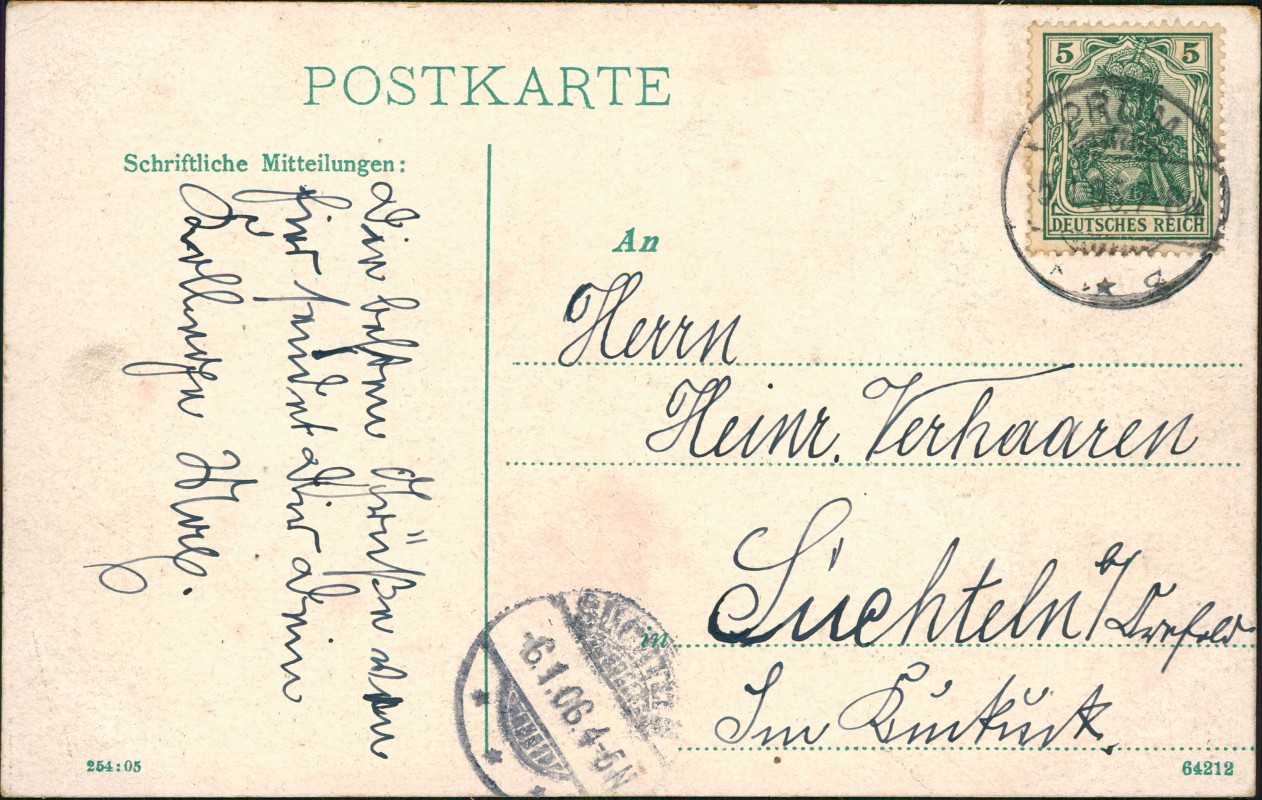 POSTKARTE
Schriftliche Mitteilungen:
Die besten Grüße von
hier sendet Dir Dein
5 5
DEUTSCHES REICH
PRÜM
An
Herrn
Heinr. Verhaaren
in Süchteln b/ Crefeld
Im Kuckuck.
-6.1.06.4-5N
254:05
64212